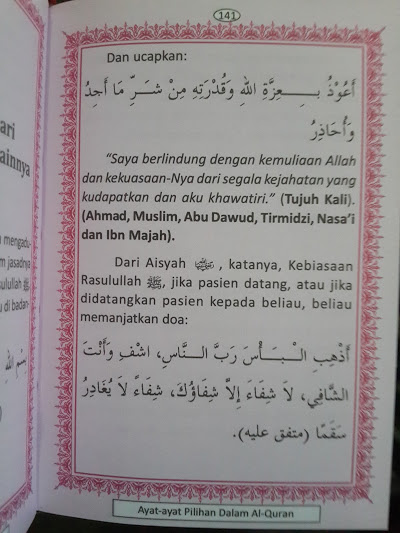 141
Dan ucapkan:
أَعُوْذُ بِعِزَّةِ اللهِ وَقُدْرَتِهِ مِنْ شَرِّ مَا أَجِدُ
وَأُحَاذِرُ
“Saya berlindung dengan kemuliaan Allah
dan kekuasaan-Nya dari segala kejahatan yang
kudapatkan dan aku khawatiri.” (Tujuh Kali).
(Ahmad, Muslim, Abu Dawud, Tirmidzi, Nasa’i
dan Ibn Majah).
Dari Aisyah , katanya, Kebiasaan
Rasulullah ﷺ, jika pasien datang, atau jika
didatangkan pasien kepada beliau, beliau
memanjatkan doa:
أَذْهِبِ الْبَأْسَ رَبَّ النَّاسِ، اشْفِ وَأَنْتَ
الشَّافِي، لاَ شِفَاءَ إِلاَّ شِفَاؤُكَ، شِفَاءً لاَ يُغَادِرُ
سَقَمًا (متفق عليه).
Ayat-ayat Pilihan Dalam Al-Quran
ari
ainnya
mengadu-
m jasadnya
sulullah ﷺ,
u di badan-
بِسْمِ اللهِ